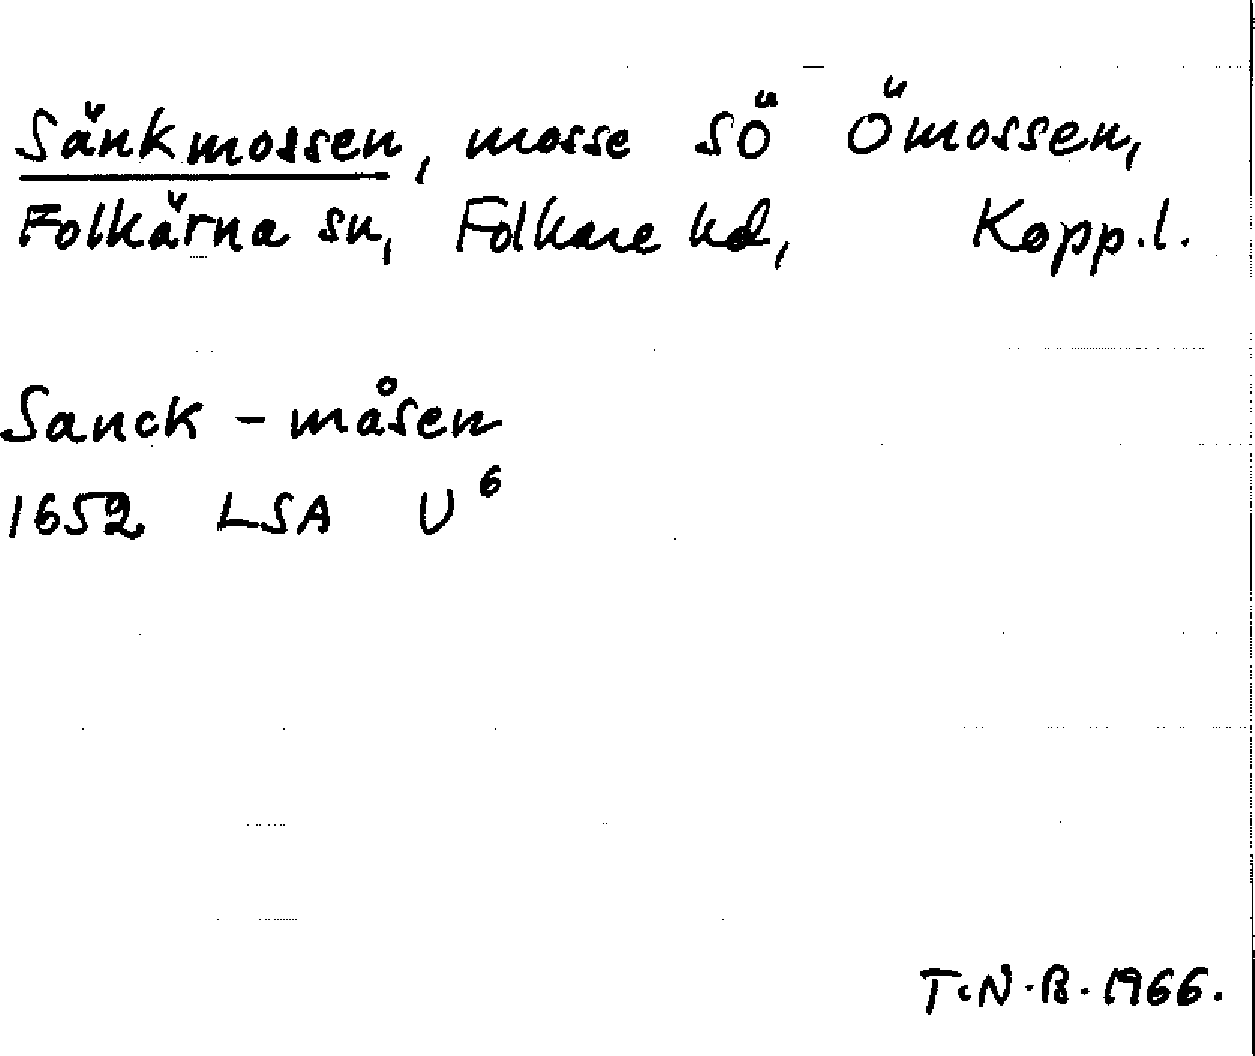 Sänkmossen, mosse SÖ Ömossen,
Folkärna sn, Folkare hd, Kopp.l.
Sanck-måsen
1652 LSA U⁶
T.N.B. 1966.